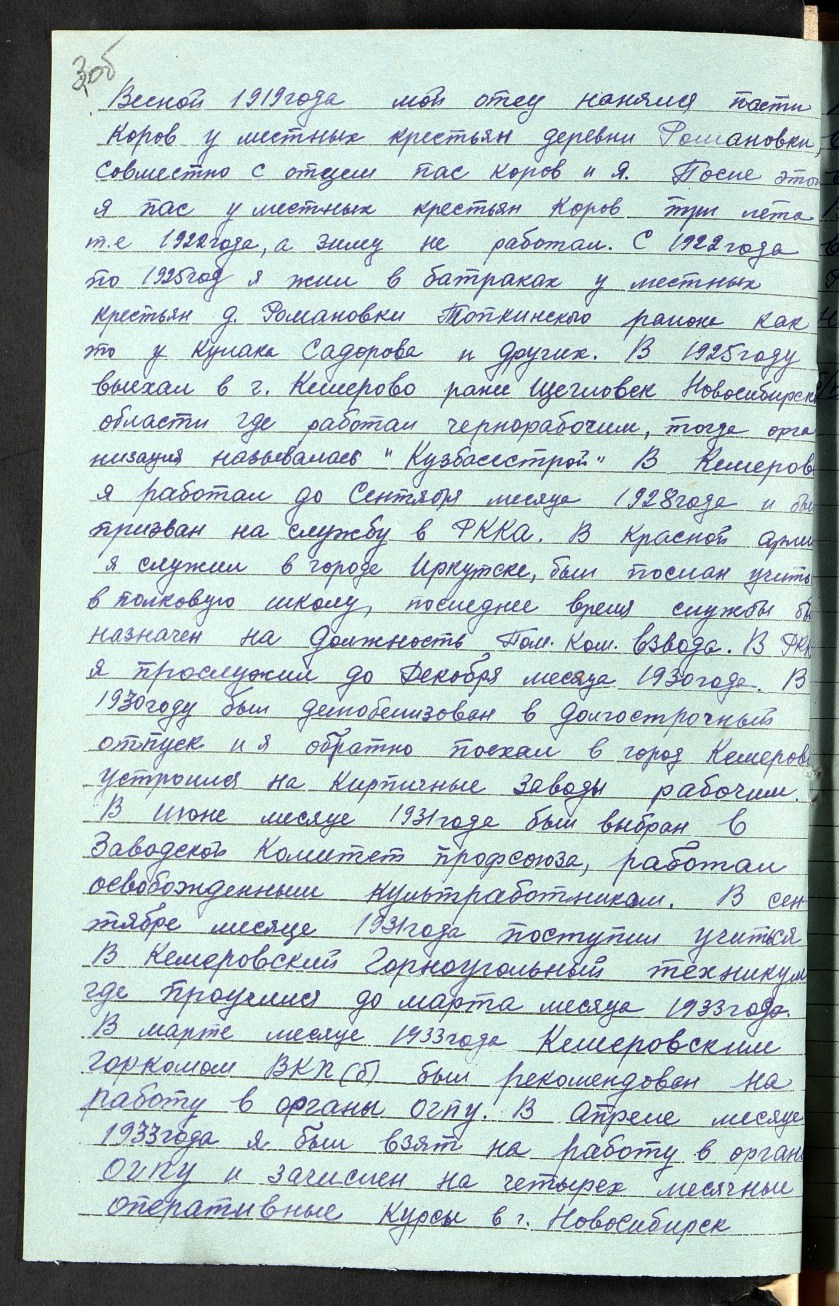 3об
Весной 1919 года мой отец нанялся пасти
коров у местных крестьян деревни Романовки,
совместно с отцем пас коров и я. После этого
я пас у местных крестьян коров три лета
т.е 1922 года, а зиму не работал. С 1922 года
по 1925 год я жил в батраках у местных
крестьян д. Романовки Топкинского района как
то у кулака Садорова и других. В 1925 году
выехал в г. Кемерово ранее Щегловск Новосибирск
области где работал чернорабочим, тогда орга
низация называлась "Кузбассстрой" В Кемеров
я работал до Сентября месяца 1928 года и был
призван на службу в РККА. В Красной арми
я служил в городе Иркутске, был послан учить
в полковую школу, последнее время службы бы
назначен на должность Пом. Ком. взвода. В РКК
я прослужил до Декабря месяца 1930 года. В
1930 году был демобелизован в долгострочный
отпуск и я обратно поехал в город Кемеров
устроился на Кирпичные заводы рабочим.
В июне месяце 1931 года был выбран в
Заводской Комитет профсоюза, работал
освобожденным культработником. В сен
тябре месяце 1931 года поступил учиться
В Кемеровский Горноугольный техникум
где проучился до марта месяца 1933 года.
В марте месяце 1933 года Кемеровским
горкомом ВКП(б) был рекомендован на
работу в органы ОГПУ. В апреле месяце
1933 года я был взят на работу в орган
ОГПУ и зачислен на четырех месячные
оперативные курсы в г. Новосибирск